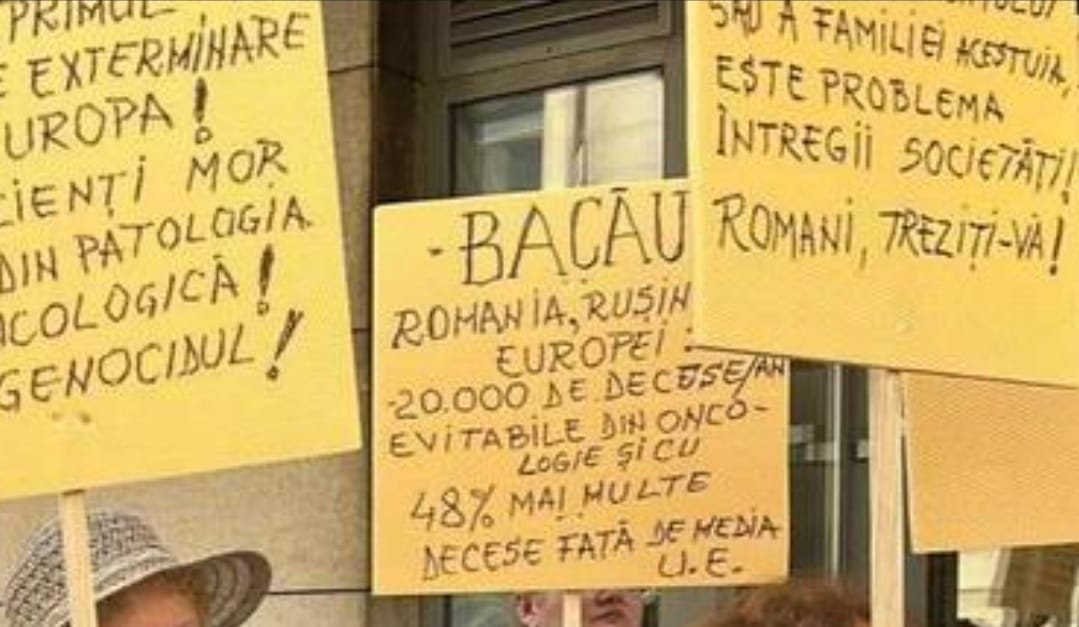 PRIMUL
EXTERMINARE
UROPA!
CIENȚI MOR
DIN PATOLOGIA
COLOGICĂ!
GENOCIDUL!
-BACĂU
ROMANIA, RUȘIN
EUROPEI:
-20.000 DE DECESE/AN
EVITABILE DIN ONCO-
LOGIE ȘI CU
48% MAI MULTE
DECESE FAȚĂ DE MEDIA
U.E.
SAU A FAMILIEI ACESTUIA,
ESTE PROBLEMA
ÎNTREGII SOCIETĂȚI!
ROMANI, TREZIȚI-VĂ!